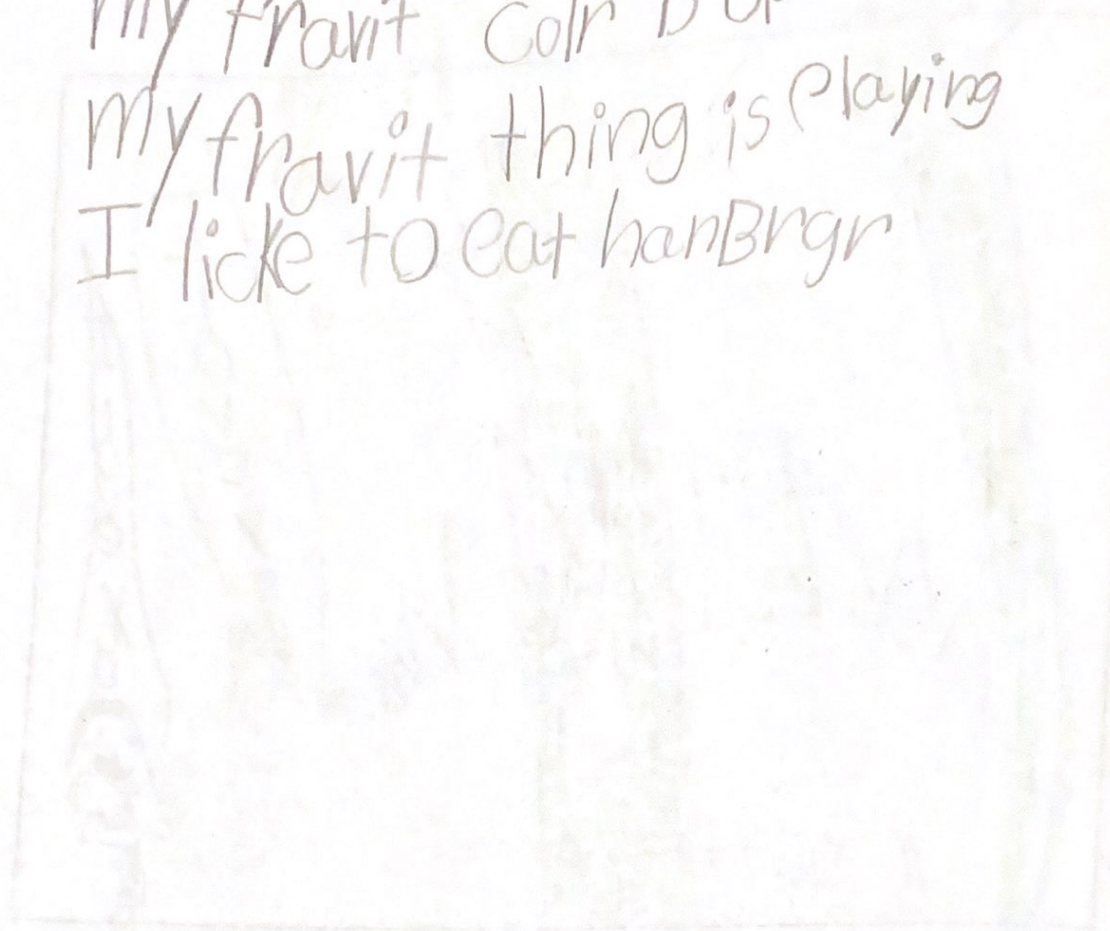 my fravit Colr
my fravit thing is Playing
I licke to eat hanBrgr